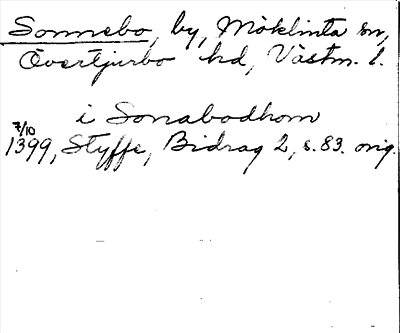 Sonnebo, by, Möklinta sn,
Övertjurbo hd, Västm. l.
i Sonabodhom
7/10
1399, Styffe, Bidrag 2, s. 83. orig.